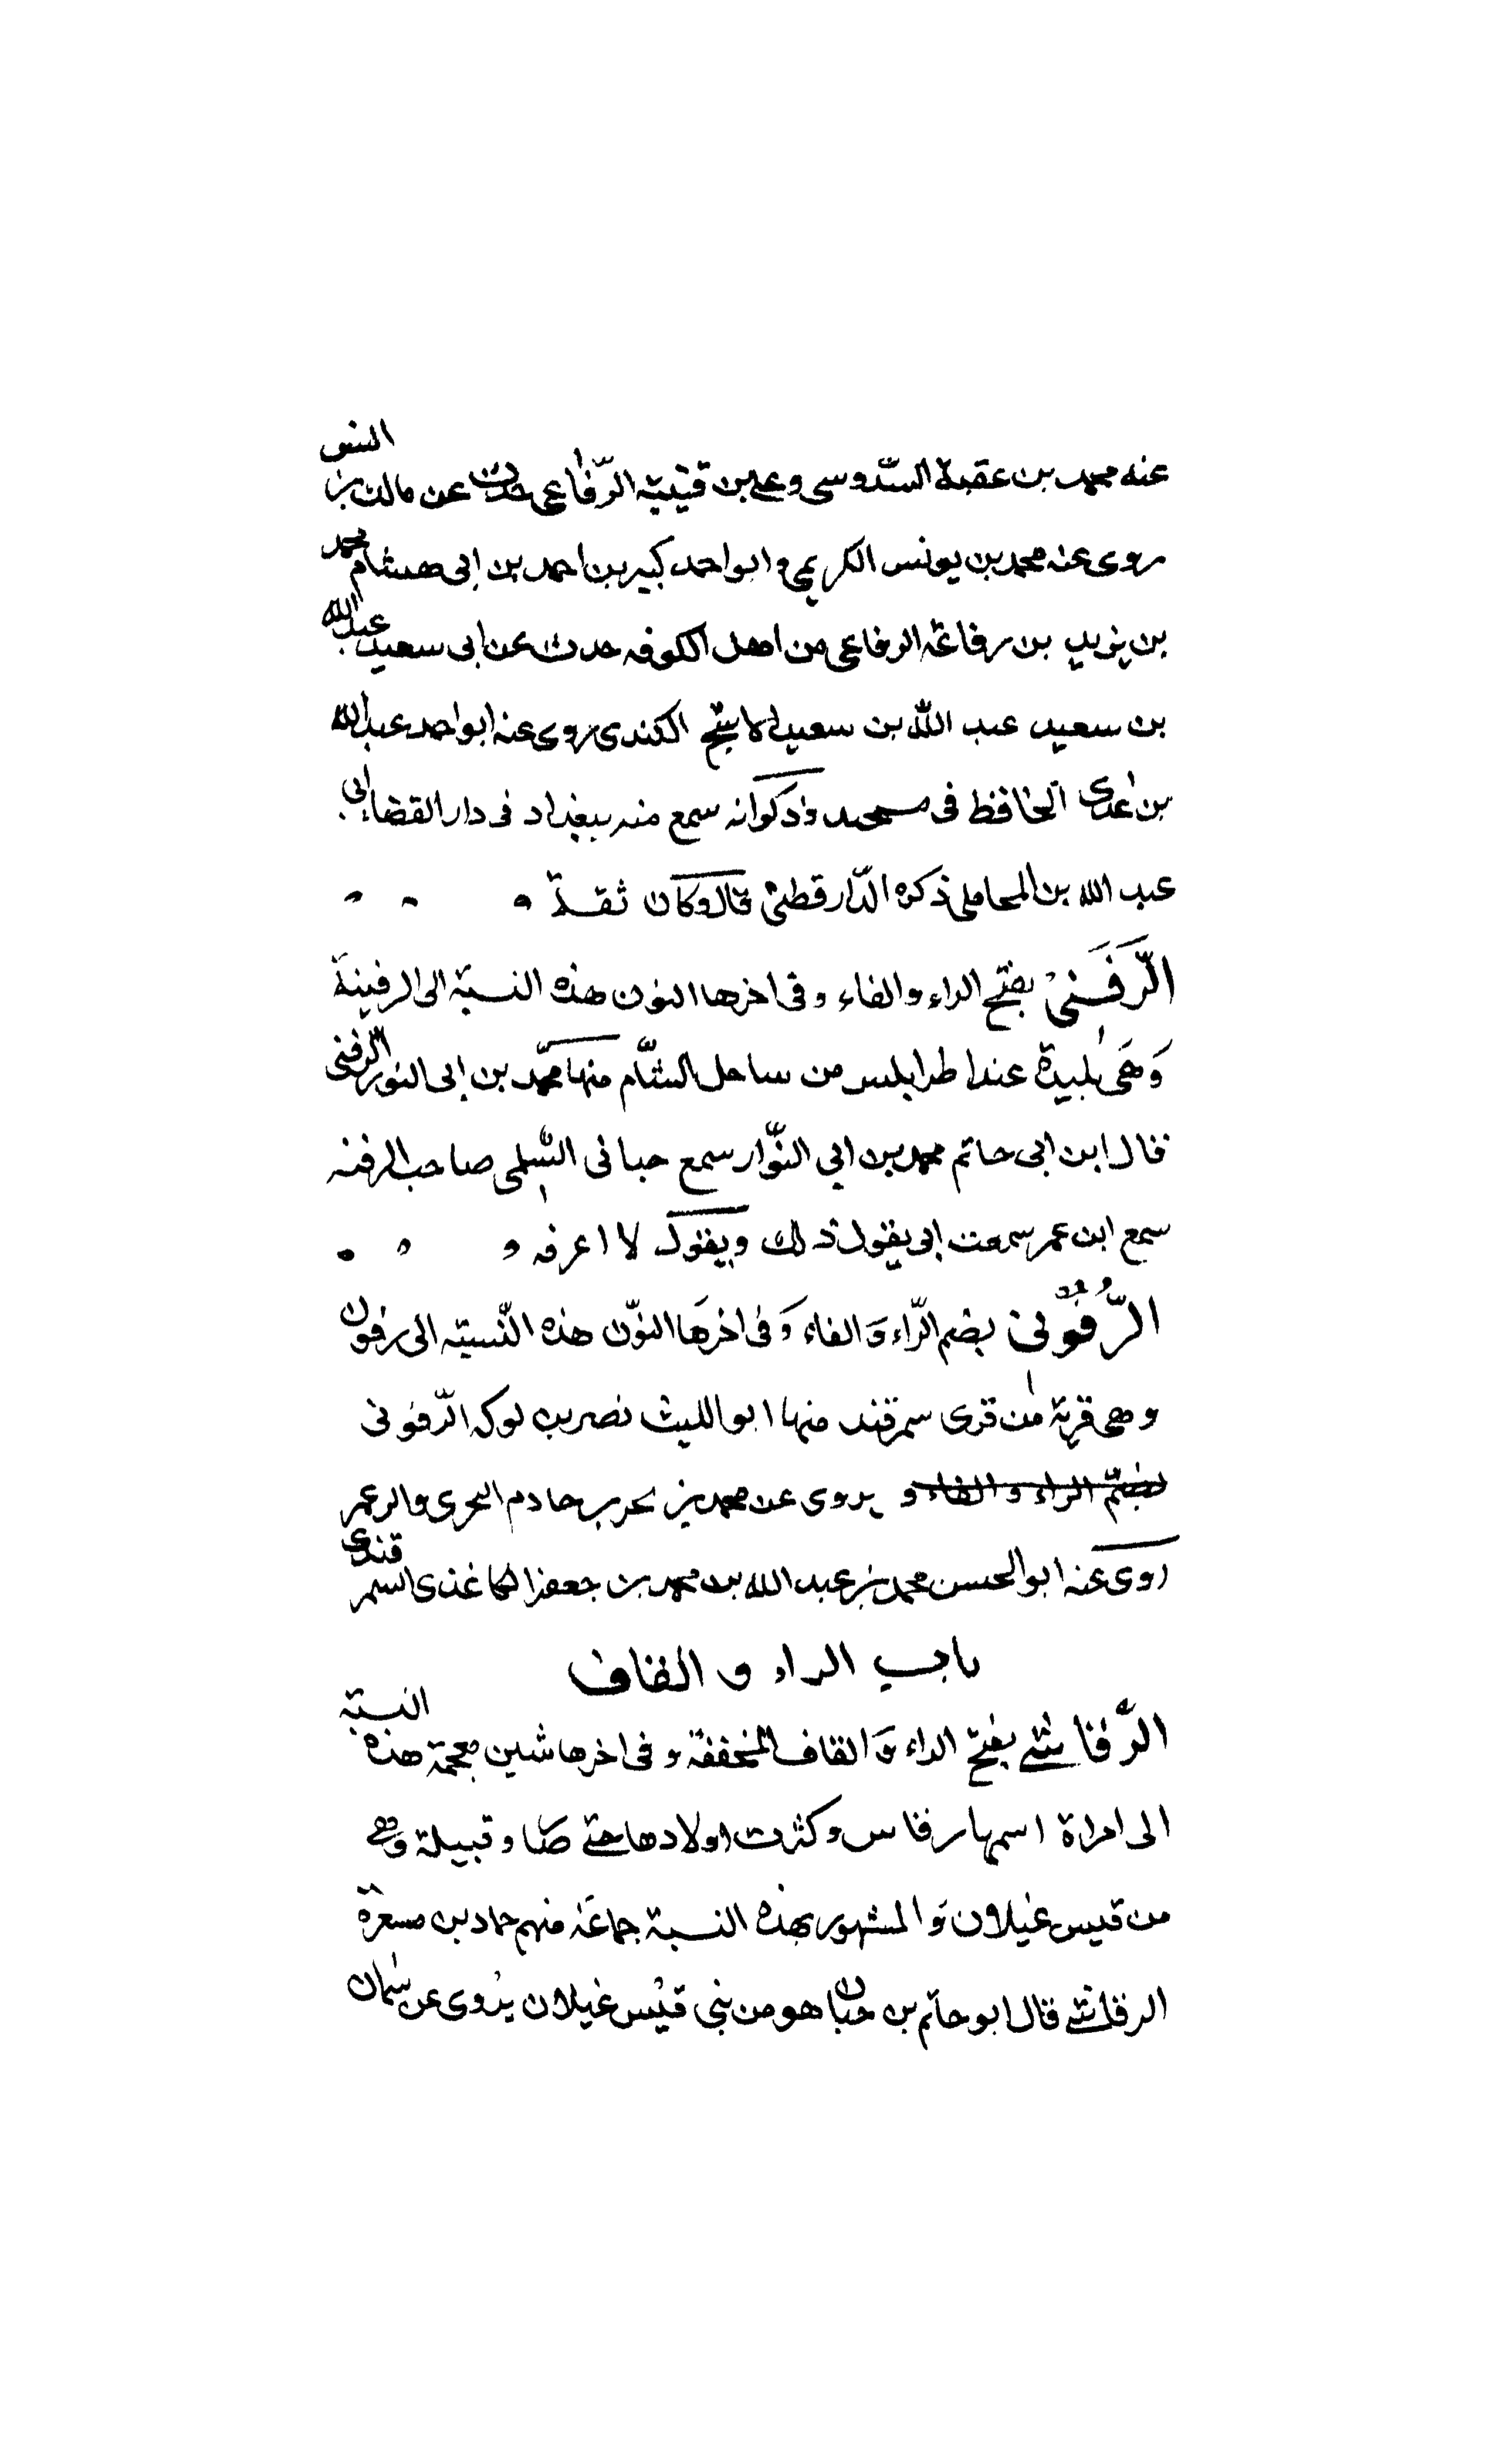 عنه محمد بن عقبة السّدوسى وعلى بن قتيبه الرّفاعى حدث عن مالك بن انس
روى عنه محمد بن يونس الكريمى وابو احمد كبير بن احمد بن ابى هشام محمد
بن يزيد بن رفاعة الرفاعى من اهل الكوفه حدث عن ابى سعيد عبد الله
بن سعيد عبد الله بن سعيد الاشج الكندى روى عنه ابو احمد عبد الله
بن عدى الحافظ فى مسجد وذكر انه سمع منه ببغداد فى دار القضا ابى
عبد الله بن المحاملى ذكره الدّارقطنى قال وكان ثقة
الرَّفَنى بفتح الراء والفاء وفى اخرها النون هذه النسبة الى الرفينة
وَهَى بلبيدة عند اطرابلس من ساحل الشّام منها محمّد بن ابى النور الرفنى
قال ابن ابى حاتم محمد بن ابي النّوار سمع حبا فى السّلمى صاحب الرفنه
سمع ابن عمر سمعت ابى يقول ذلك ويقول لا اعرفه
الرُّفُونى بضم الرّاء وَالفاء وَفى اخرهَا النوّن هذه النّسبة الى رفون
وهى قرية من قرى سمرقند منها ابو الليث نصر بن لوكه الرّفونى
بضمّ الراء والفاء و يروى عن محمد بن بحر بن خادم البحرى والرعمر
روى عنه ابو الحسن محمد بن عبد الله بن محمد بن جعفر الكاغذى السمرقندى
باب الراء والقاف
الرّقاشى بفتح الراء وَالقاف المخففة وفى اخرها شين معجمة هذه النسبة
الى امراة اسمها رقاس وكثرت اولادها حتى صَاروا قبيلة وهى
من قيس غيلان وَالمشهور بهذه النسبة جماعَة منهم حماد بن مسعدة
الرقاشى قال ابو حاتم بن حبان هو من بنى قيس غيلان يروى عن سلمان